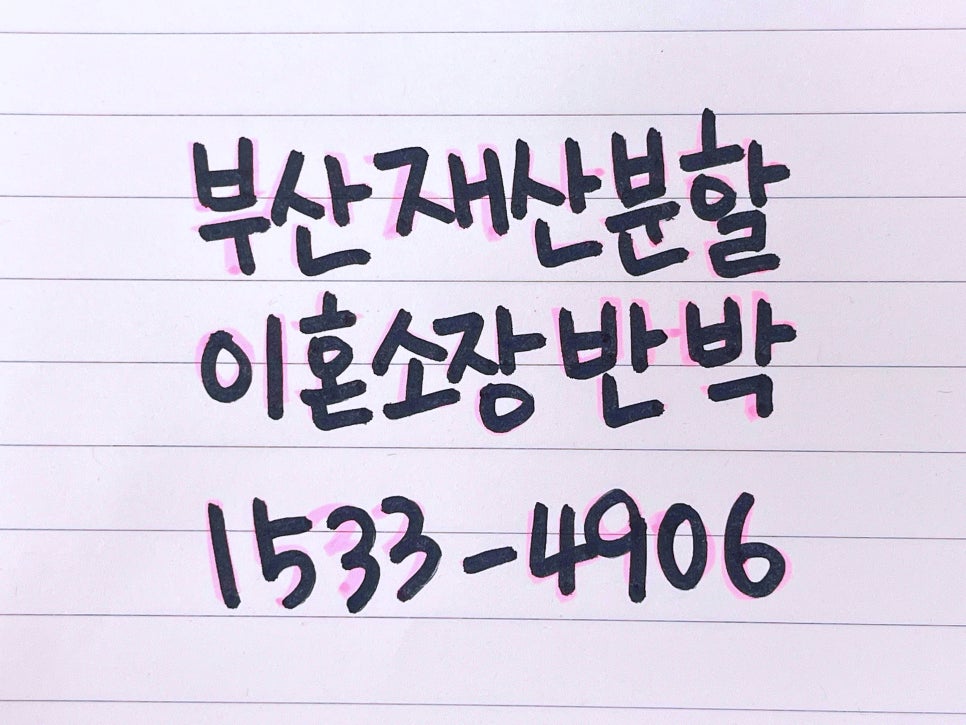 부산 재산분할
이혼소장 반박
1533-4906